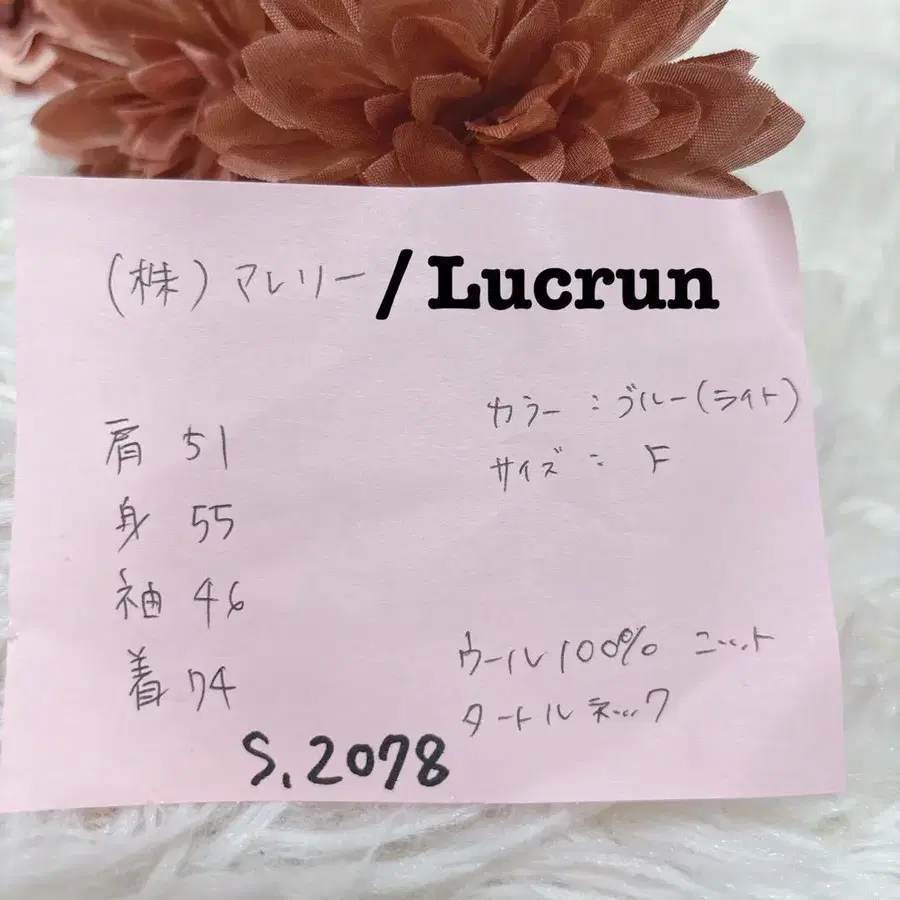 (株)マレリー / Lucrun
カラー：ブルー(ライト)
サイズ： F
肩 51
身 55
袖 46
着 74
ウール100% ニット
タートルネック
S.2078